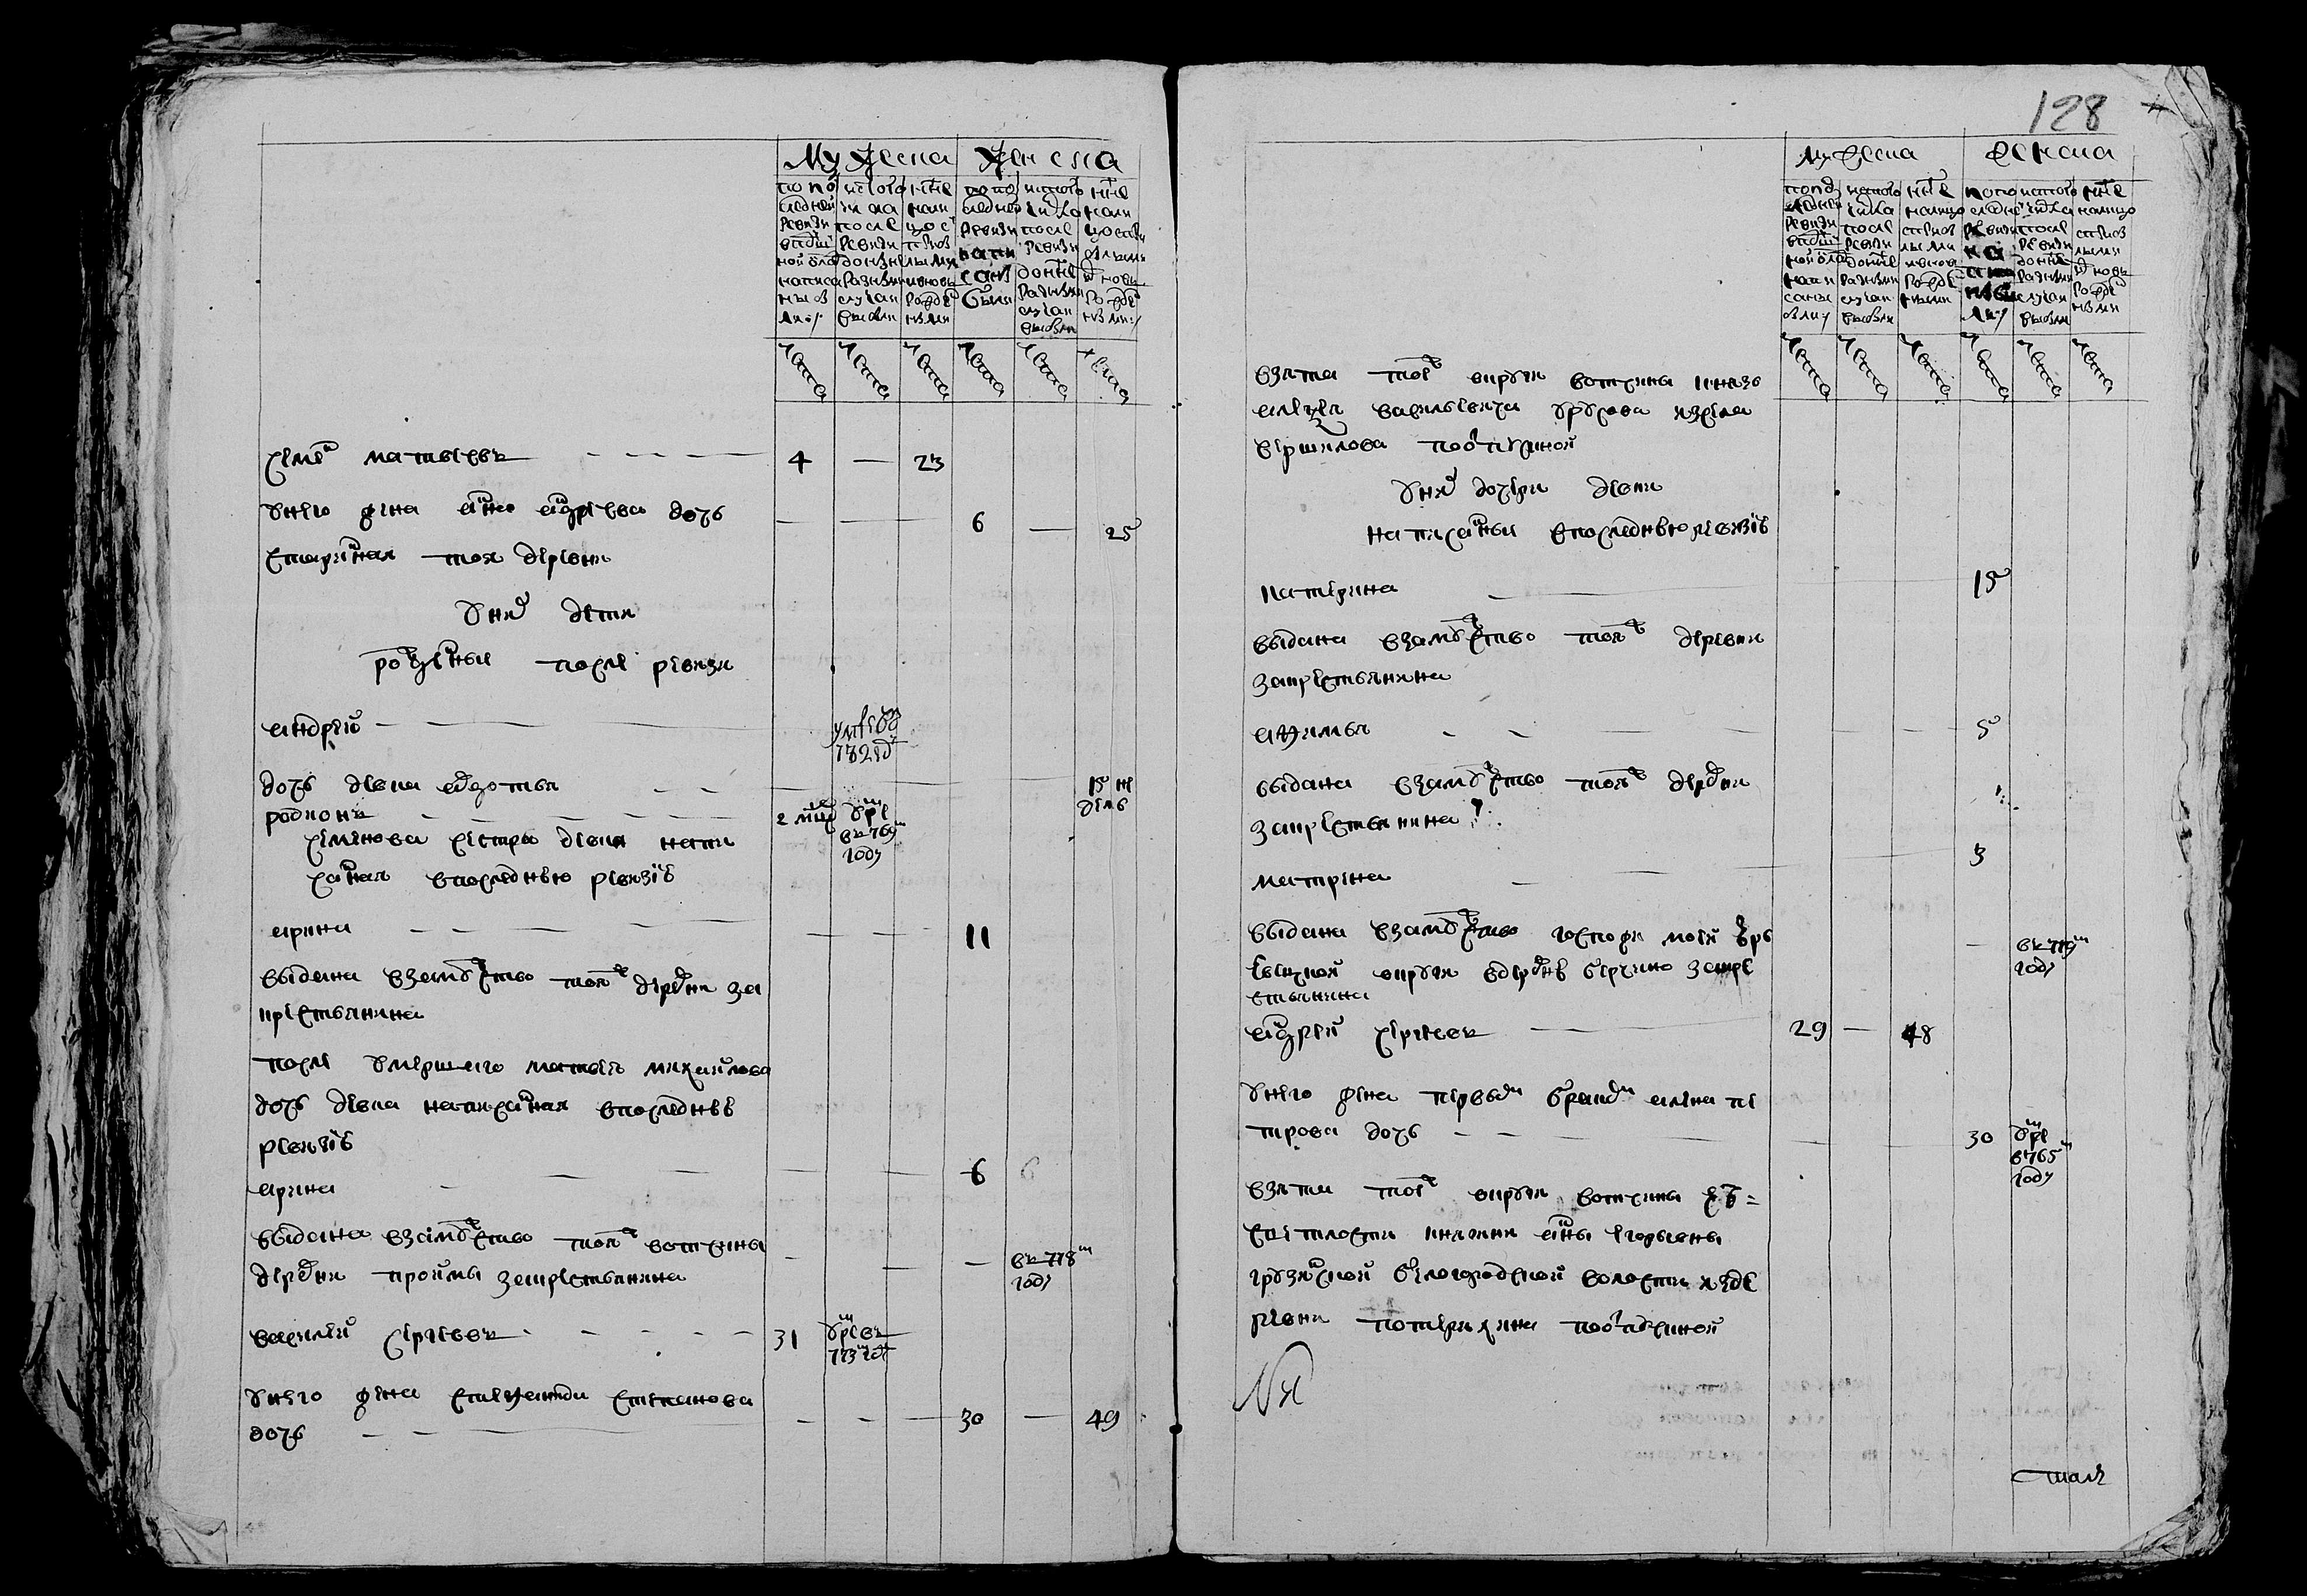 128
Мужеска Женска
по последней ревизии в подушной оклад написаны были
ис того числа после ревизии до ныне разными случаи выбыли
ныне налицо с прибылыми и вновь рожденными
по последней ревизии написаны были
ис того числа после ревизии до ныне разными случаи выбыли
ныне налицо с прибылыми и вновь рожденными
лета лета лета лета лета лета
семен матвеевъ 4 — 23
у него жена анна андреева дочь 6 — 25
старинная тоя деревни
у них дети
рожденныя после ревизи
андреи умре в 1782 году
дочь девка авдотья 15 недель
родионъ 2 мца умре въ 769м году
семенова сестра девка напи
санная в последнюю ревизию
арина 11
выдана в замужество тоя ж деревни за
крестьянина
после умершаго матвея михаилова
дочь девка написанная в последнюю
ревизию
арина 6 6
выдана в замужество тоя ж вотчины
деревни за крестьянина въ 778м году
василеи сергеевъ 31 умре въ 773м году
у него жена степанова
дочь 30 — 49
Мужеска Женска
по последней ревизии в подушной оклад написаны были
ис того числа после ревизии до ныне разными случаи выбыли
ныне налицо с прибылыми и вновь рожденными
по последней ревизии написаны были
ис того числа после ревизии до ныне разными случаи выбыли
ныне налицо с прибылыми и вновь рожденными
лета лета лета лета лета лета
взята той ж округи вотчины князя
алексея васильевича урусова из села
вершилова по отпускной
у них дочери девки
написанныи в последнюю ревизию
катерина 15
выдана в замужество тоя ж деревни
за крестьянина
акулина 5
выдана в замужество тоя ж деревни
за крестьянина
матрена 3
выдана в замужество госпожи моей
округи в деревню за кре
стьянина въ 779м году
андреи сергеевъ 29 — 48
у него жена первым браком алена пе
трова дочь 30 умре в 765м году
взята той ж округи вотчины ея
светлости княжны анны егорьевны
грузинской белогородской волости из де
ревни по отпускной